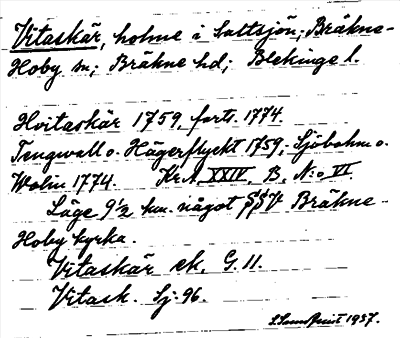 Vitaskär, holme i Saltsjön; Bräkne-
Hoby sn; Bräkne hd; Blekinge l.
Hvitaskär 1759, forts. 1774.
Tengwall o. Hägerflyckt 1759; Sjöbohm o.
Wolin 1774. KrA XXIV, B, N:o VI.
Läge 9½ km. något SSV Bräkne-
Hoby kyrka.
Vitaskär ek. G. 11.
Vitask. Sj. 96.
1937.